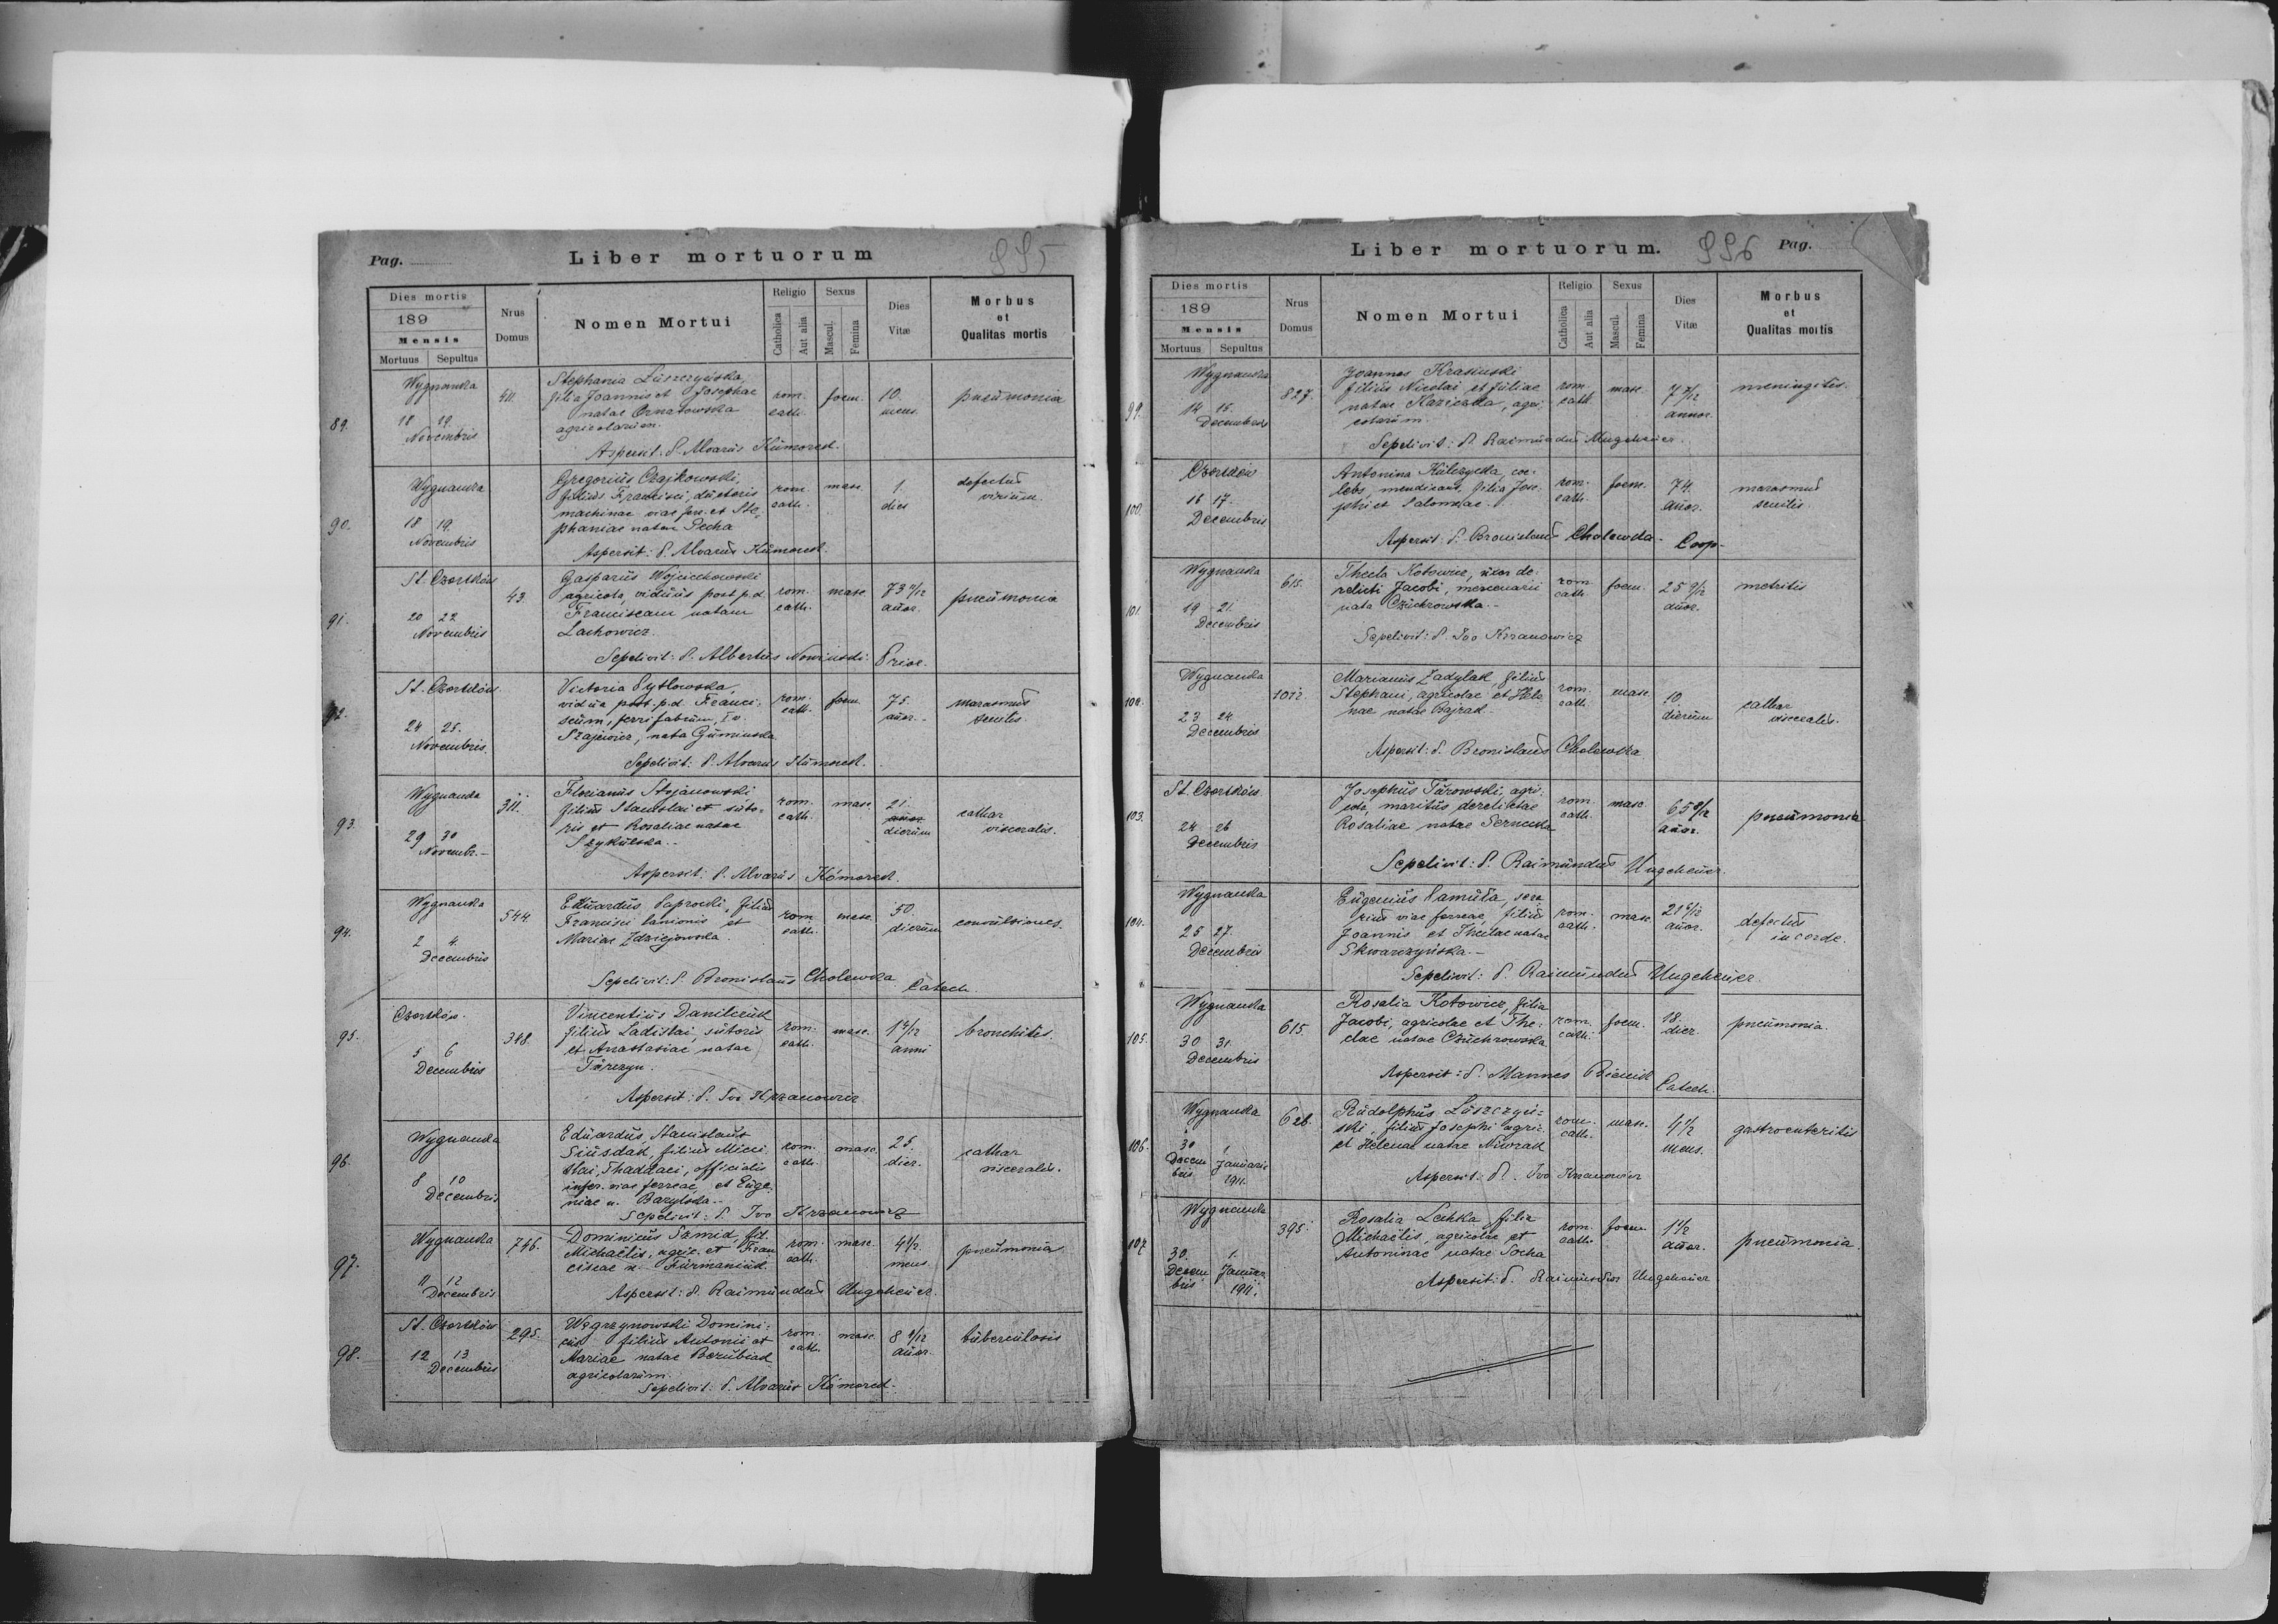 Pag.
Liber mortuorum
995
Dies mortis
189
Mensis
Mortuus Sepultus
Nrus Domus
Nomen Mortui
Religio
Catholica
Aut alia
Sexus
Mascul.
Femina
Dies Vitæ
Morbus et Qualitas mortis
89.
Wygnanka
18 19
Novembris
411.
Stephania Luszczyńska,
filia Joannis et Josephae
natae Ornatowska
agricolarum.
rom. cath.
foem.
10. mens.
pneumonia
Aspersit: P. Alvarus Kümorek.
90.
Wygnanka
18 19
Novembris
Gregorius Czajkowski,
filius Francisci, ductoris
machinae viae ferr. et Ste-
phaniae natae Pecha
rom. cath.
masc.
1. dies
defectus virium.
Aspersit: P. Alvarus Kümorek.
91.
St. Czortków
20 22
Novembris
43.
Gasparus Wojciechowski
agricola, viduus post p.d.
Franciscam natam
Lachowicz.
rom. cath.
masc.
añor.
pneumonia
Sepelivit: P. Albertus Nowinski Prior.
92.
St. Czortków
24 25.
Novembris.
Victoria Pytlowska,
vidua post. p.d. Franci-
scum, ferri fabrum,
Szajewicz, nata Guminska
rom. cath.
foem.
75. añor.
marasmus senilis.
Sepelivit: P. Alvarus Kümorek.
93.
Wygnanka
29 30
Novembr.
311.
Florianus Stojanowski
filius Stanislai et suto-
ris et Rosaliae natae
Szykulska.
rom. cath.
masc.
21. añor. dierum
cathar visceralis.
Aspersit: P. Alvarus Kómorek.
94.
Wygnanka
2 4.
Decembris
544
Eduardus Paprocki, filius
Francisci lanionis et
Mariae Zdziejowska.
rom. cath.
masc.
50. dierum
convulsiones.
Sepelivit: P. Bronislaus Cholewka Catech.
95.
Czortków.
5 6
Decembris
348.
Vincentius Danilczuk
filius Ladislai, sutoris
et Anastasiae natae
Türczyn.
rom. cath.
masc.
anni
bronchitis.
Aspersit: P. Ivo Krzanowicz
96.
Wygnanka
8 10
Decembris
Eduardus, Stanislaus
Siusdak, filius Mieci-
slai, Thaddaei, officialis
infer. viae ferreae, et Euge-
niae n. Barylska.
rom. cath.
masc.
25. dier.
cathar visceralis.
Sepelivit: P. Ivo Krzanowicz
97.
Wygnanka
11 12
Decembris
746.
Dominicus Szmid, fil.
Michaëlis, agric. et Fran
ciscae n. Furmaniuk.
rom. cath.
masc.
4½. mens.
pneumonia
Aspersit: P. Raimundus Ungeheuer.
98.
St. Czortków
12 13
Decembris
295.
Węgrzynowski Domini-
cus filius Antonii et
Mariae natae Bezubiak
agricolarum.
rom. cath.
masc.
añor.
tuberculosis
Sepelivit: P. Alvarus Kómorek.
Liber mortuorum.
996
Pag.
Dies mortis
189
Mensis
Mortuus Sepultus
Nrus Domus
Nomen Mortui
Religio
Catholica
Aut alia
Sexus
Mascul.
Femina
Dies Vitæ
Morbus et Qualitas mortis
99.
Wygnanka
14 15.
Decembris
827.
Joannes Krasinski
filius Nicolai et Juliae
natae Kaziczka, agri-
colarum.
rom. cath.
masc.
7 7/12 annor.
meningitis.
Sepelivit: P. Raimundus Ungeheuer.
100.
Czortków
16 17.
Decembris
Antonina Kulczycka, coe-
lebs, mendicans, filia Jose-
phi et Salomeae.
rom. cath.
foem.
74. añor.
marasmus senilis.
Aspersit: P. Bronislaus Cholewka. Coop.
101.
Wygnanka
19 21.
Decembris
615.
Thecla Kotowicz, uxor de-
relicti Jacobi, mercenarii
nata Czuchrowska.
rom cath.
foem.
25 9/12 añor.
metritis
Sepelivit: P. Ivo Krzanowicz
102.
Wygnanka
23 24
Decembris
1012.
Marianus Zadylak, filius
Stephani, agricolae et Hele
nae natae Bajrak.
rom. cath.
masc.
10. dierum
cathar visceralis.
Aspersit: P. Bronislaus Cholewka
103.
St. Czortków
24 26
Decembris
Josephus Turowski, agri-
cola, maritus derelictae
Rosaliae natae Sernecka
rom. cath.
masc
65 8/12 añor.
pneumonia
Sepelivit: P. Raimundus Ungeheuer.
104.
Wygnanka
25 27.
Decembris
Eugenius Pamuła, scra
rius viae ferreae, filius
Joannis et Theclae natae
Skwarczyńska.
rom. cath.
masc.
21 6/12 añor.
defectus in corde.
Sepelivit: P. Raimundus Ungeheuer.
105.
Wygnanka
30 31.
Decembris
615.
Rosalia Kotowicz, filia
Jacobi, agricolae et The-
clae natae Czuchrowska
rom. cath.
foem.
18. dier.
pneumonia.
Aspersit: P. Mannes Bieniek Catech.
106.
Wygnanka
30 1
Decem Januarii
bris 1911.
626.
Rudolphus Luszczyń-
ski, filius Josephi agric.
et Helenae natae Niwrak
rom. cath.
masc.
4½ mens.
gastroenteritis
Aspersit: P. Ivo Krzanowicz
107.
Wygnanka
30. 1.
Decem Januar.
bris 1911.
395.
Rosalia Lechka, filia
Michaëlis, agricolae et
Antoninae natae Socha
rom. cath.
foem.
1½ añor.
pneumonia.
Aspersit: P. Raimundus Ungeheuer